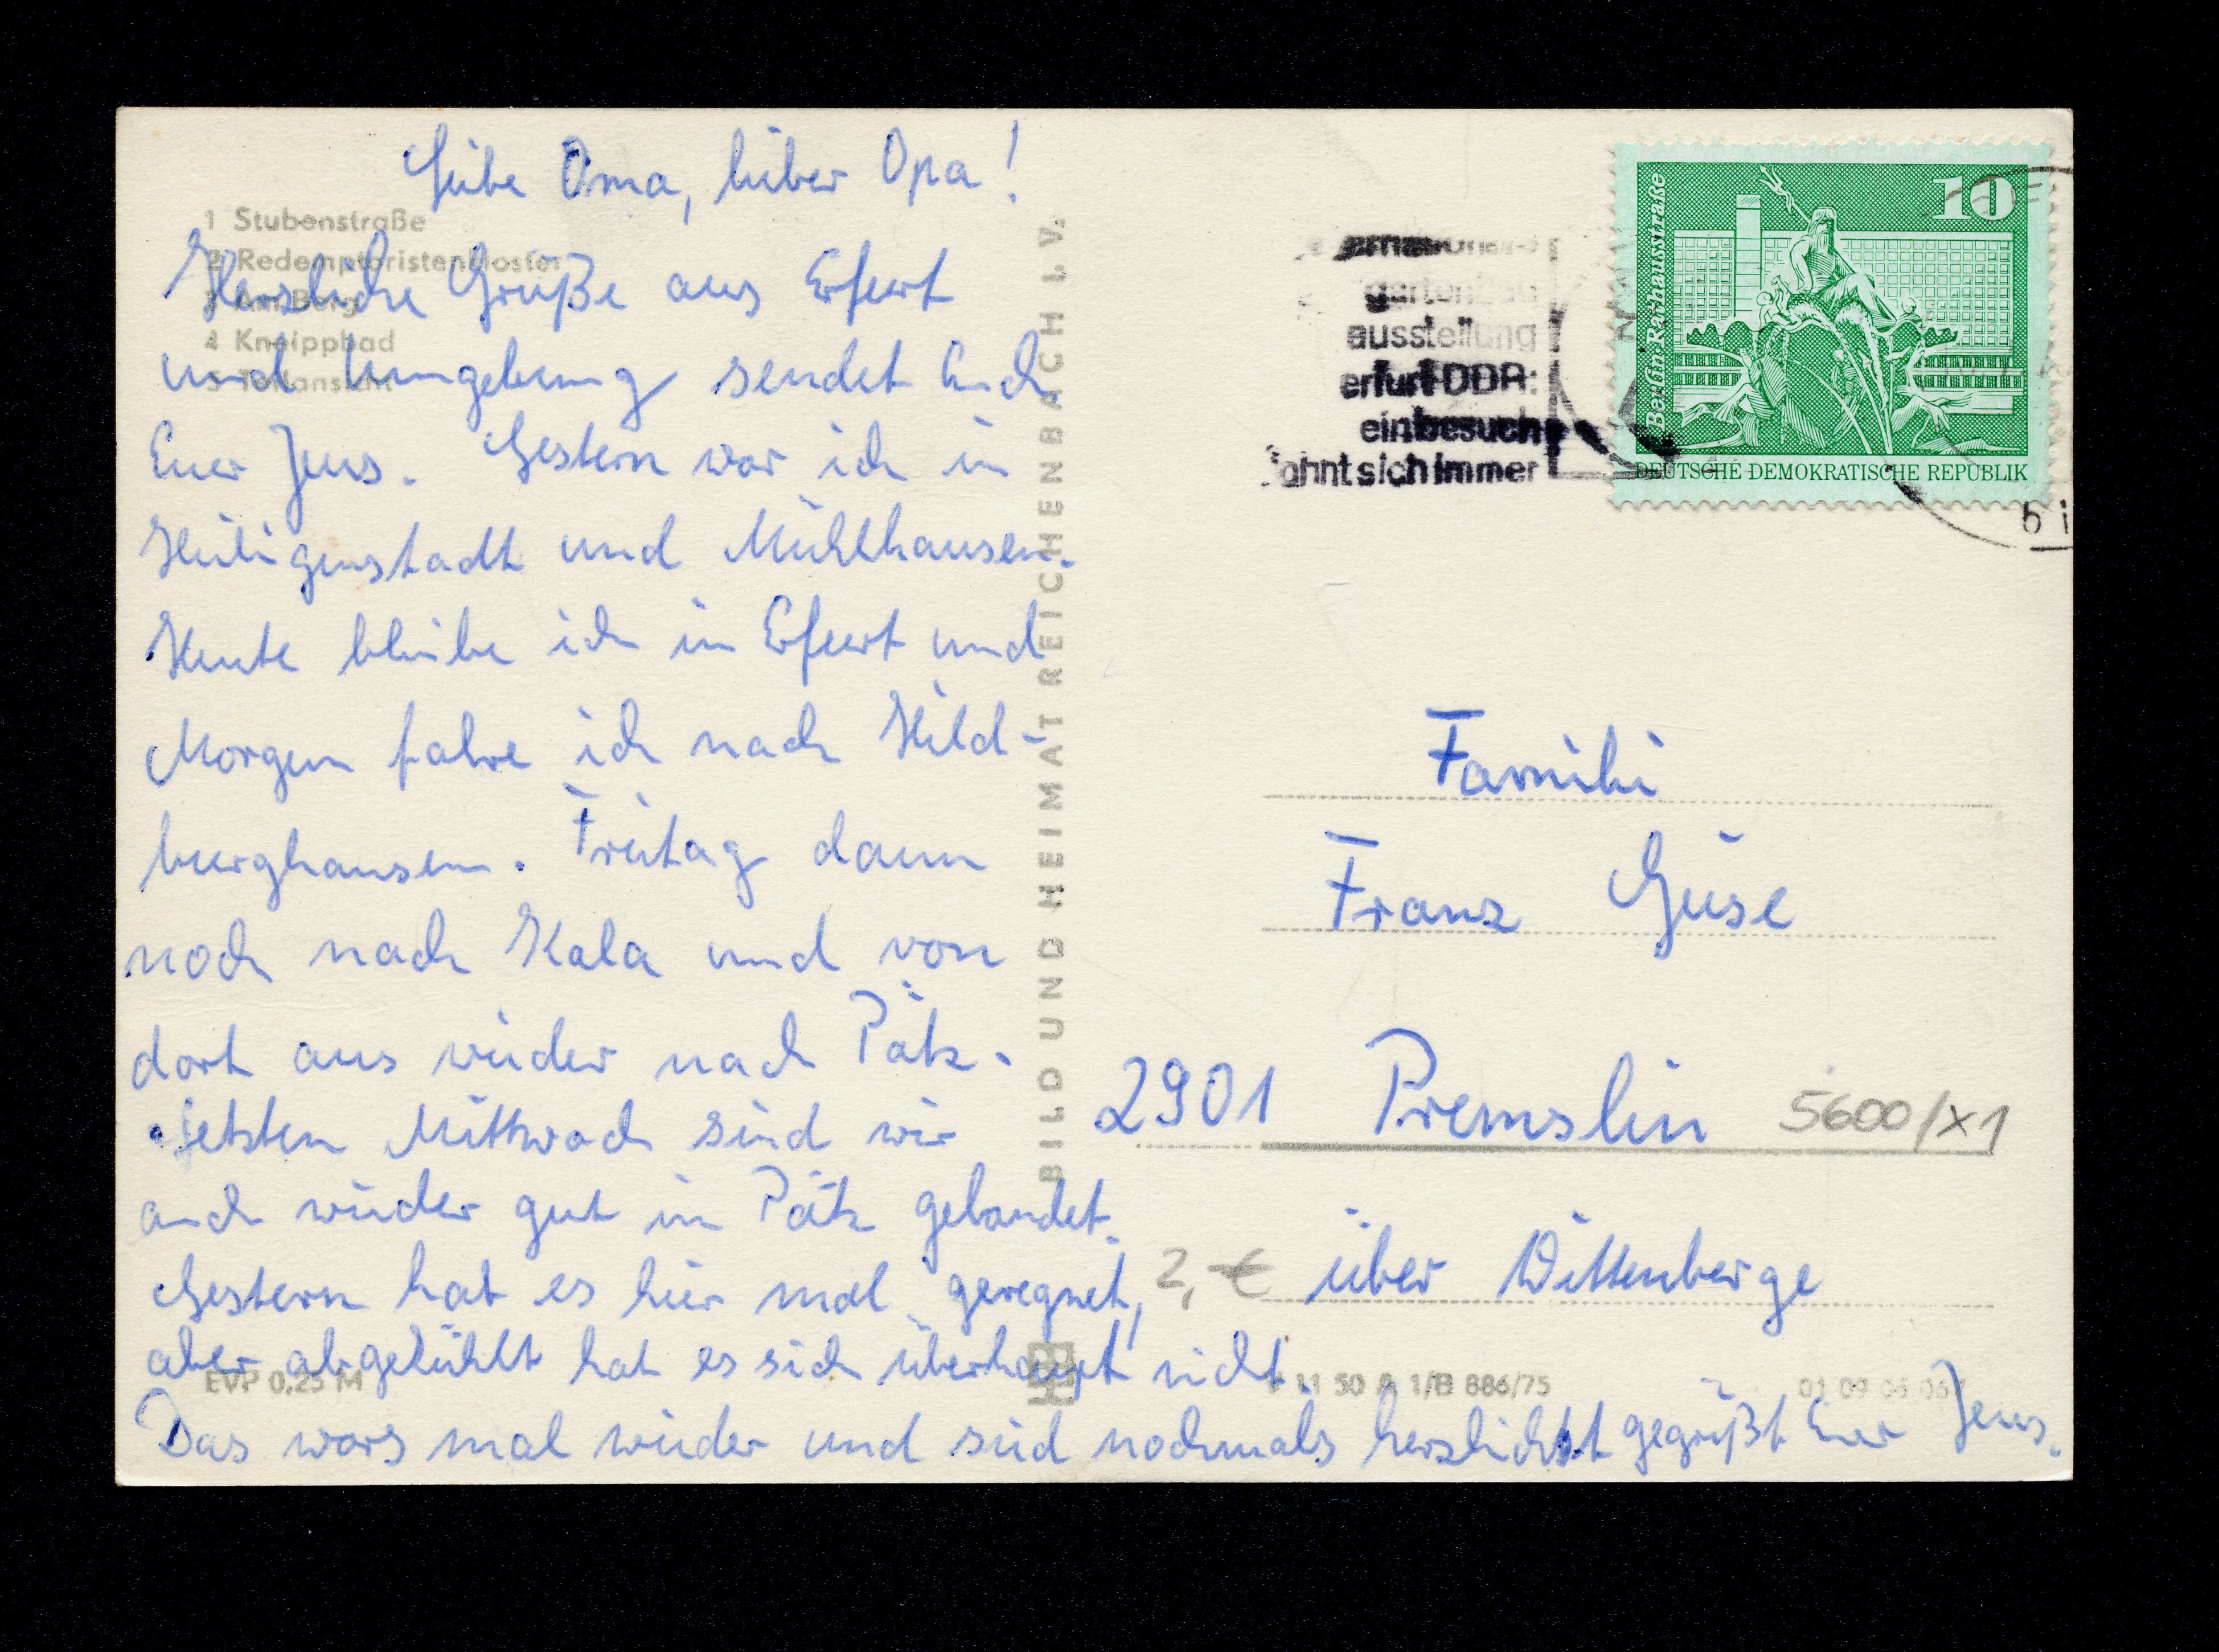 Liebe Oma, lieber Opa!
1 Stubenstraße
2 Redemptoristenkloster
3 Am Berg
4 Kneippbad
5 Teilansicht
Herzliche Grüße aus Erfurt
und Umgebung sendet Euch
Euer Jens. Gestern war ich in
Heiligenstadt und Mühlhausen.
Heute bleibe ich in Erfurt und
Morgen fahre ich nach Hild-
burghausen. Freitag dann
noch nach Kala und von
dort aus wieder nach Pätz.
Letzten Mittwoch sind wir
auch wieder gut in Pätz gelandet.
Gestern hat es hier mal geregnet,
aber abgekühlt hat es sich überhaupt nicht.
Das wars mal wieder und seid nochmals herzlichst gegrüßt Euer Jens.
EVP 0,25 M
BILD UND HEIMAT REICHENBACH I. V.
gartenbau
ausstellung
erfurt DDR:
ein besuch
lohnt sich immer
10
Berlin, Rathausstraße
DEUTSCHE DEMOKRATISCHE REPUBLIK
Familie
Franz Guse
2901 Premslin
5600/X1
über Wittenberge
2,-€
11 50 A 1/B 886/75
01 09 06 067